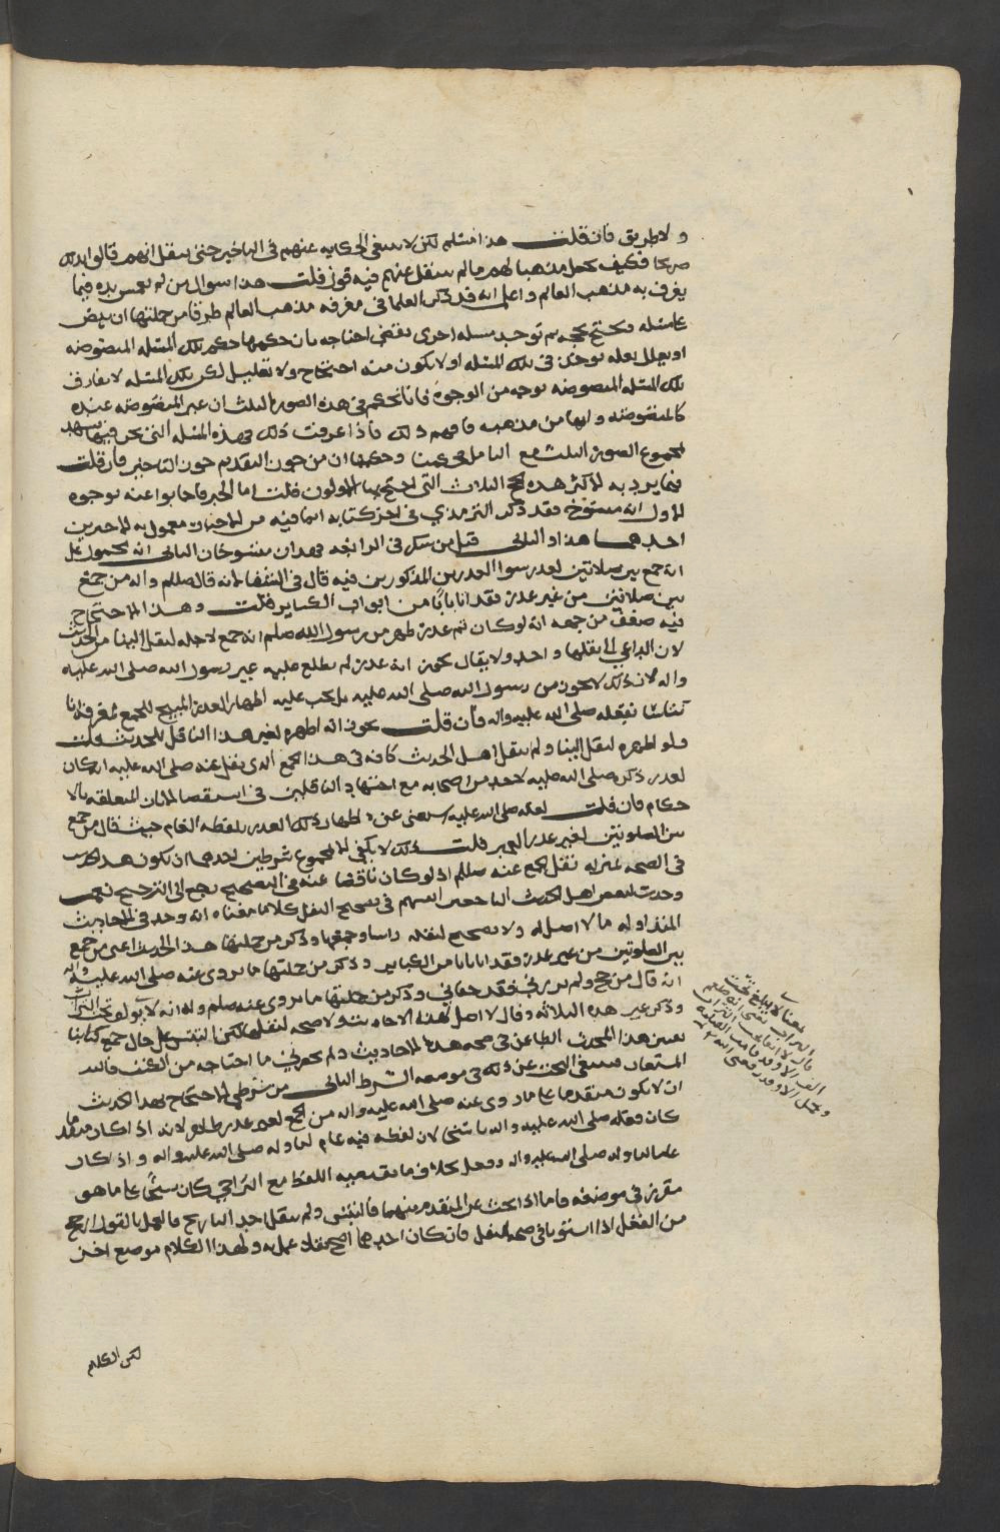 ولا طريق فان قلت هذا مسلم لكن لا ينبغي الحكايه عنهم في التاخير حتى ينقل انهم قالوا بذلك
صريحا فكيف تجعل مذهبا لهم ما لم ينقل عنهم فيه قول قلت هذا سوال من لم يغمس يده فيما
يعرف به مذهب العالم واعلم انه قد ذكر العلما في معرفه مذهب العالم طرقا من جملتها ان ينص
على مسله ويحتج بحجه ثم توجد مسله اخرى يقتضي احتجاجه بان حكمها حكم تلك المسله المنصوصه
او يعلل بعله توجد في تلك المسله او لا يكون منه احتجاج ولا تعليل لكن تلك المسله لا تفارق
تلك المسله المنصوصه بوجه من الوجوه فانا نحكم في هذه الصور الثلث ان غير المنصوصه عنده
كالمنصوصه وانها من مذهبه فافهم ذلك فاذا عرفت ذلك فهذه المسله التي نحن فيها
لمجموع الصور الثلث مع التامل وحكمها ان من جوز التقديم جوز التاخير فان قلت
فما يرد به الاكثر هذه الحجج الثلاث التي احتج بها الاولون قلت اما الخبر فاجابوا عنه بوجوه
الاول انه منسوخ فقد ذكر الترمذي في اخر كتابه ان ما فيه من الاخبار معمول به الا خبرين
احدهما هذا والثاني قتل من سكر في الرابعه فهذان منسوخان الثاني انه محمول على
انه جمع بين صلاتين لعذر سوا العذرين المذكورين فيه قال في الشفا لانه قال صللم واله من جمع
بين صلاتين من غير عذر فقد اتا بابا من ابواب الكباير قلت وهذا الاحتجاج
فيه ضعف من جهه انه لو كان ثم عذر ظهر من رسول الله صلعم انه جمع لاجله لنقل الينا مع الحديث
لان الداعي الى نقلهما واحد ولا يقال يجوز انه عذر لم يطلع عليه غير رسول الله صلى الله عليه
واله لان ذلك لا يجوز من رسول الله صلى الله عليه بل يجب عليه اظهار العذر المبيح للجمع لمعرفه انا
نتاسا بفعله صلى الله عليه واله فان قلت يجوز انه اظهره لغير هذا الناقل للحديث قلت
ولو اظهره لنقل الينا ولم ينقل اهل الحديث كافه في هذا الجمع الذي نقل عنه صلى الله عليه انه كان
لعذر ذكره صلى الله عليه لاحد من اصحابه مع اجتهاد الناقلين في استقصا المتعلقه بالا
حكام فان قلت لعله صلى الله عليه استغنى عن اظهار ذلك العذر بلفظه العام حيث قال من جمع
بين الصلوتين لغير عذر الخبر قلت ذلك لا يكفي الا بمجموع شرطين احدهما ان يكون هذا الحديث
في الصحه بمنزله نقل الجمع عنه صللم اذ لو كان ناقصا عنه في التصحيح رجع الى الترجيح نعم
وجدت لبعض اهل الحديث في تصحيح النقل كلاما معناه انه وجد في الاحاديث
المتداوله ما لا اصل له ولا تصحيح لنقله راسا وجمعها وذكر من جملتها هذا الحديث اعني من جمع
بين الصلوتين من غير عذر فقد اتا بابا من الكباير وذكر من جملتها ما يروى عنه صلى الله عليه واله
انه قال من حج ولم يزرني فقد جفاني وذكر من جملتها ما يروى عنه صلعم وله انه لا
وذكر غير هذه الثلاثه وقال لا اصل لهذه الاحاديث ولا صحه لنقلها لكن التبس علي حال جمع كتابنا
تعيين هذا المحدث الطاعن في صحه هذه الاحاديث ولم يحضرني ما احتاجه من الكتب فالله
المستعان فينبغي البحث عن ذلك في موضعه الشرط الثاني من شرطي الاحتجاج بهذا الحديث
ان لا يكون متقدما على ما روى عنه صلى الله عليه واله من الجمع لغير عذر ظاهر لانه اذا كان متقدما
كان فعله صلى الله عليه واله ناسخا لان لفظه فيه عام لما وله صلى الله عليه واله واذا كان
عاما له صلى الله عليه واله وفعل بخلاف ما يقتضيه اللفظ مع التراخي كان نسخا على ما هو
مقرر في موضعه فاما اذا بحث عن المتقدم منهما فالتبس ولم ينقل احد التاريخ فالعمل بالقول ارجح
من الفعل اذا استويا في صحه النقل فان كان احدهما اصح نقلا عمل به ولهذا الكلام موضع اخر
لكن الكلام